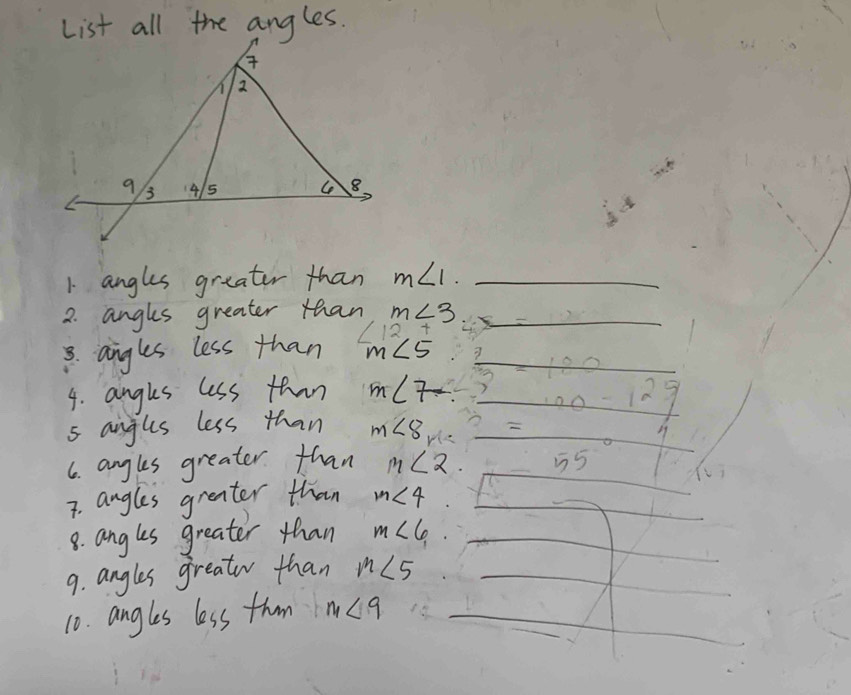 List all the angles.
7
1 2
9 3 4 5 6 8
1. angles greater than m∠1.
2. angles greater than m∠3.
3. angles less than m∠5.
4. angles less than m∠7.
5. angles less than m∠8
6. angles greater than m∠2.
7. angles greater than m∠4.
8. angles greater than m∠6.
9. angles greater than m∠5.
10. angles less than m∠9